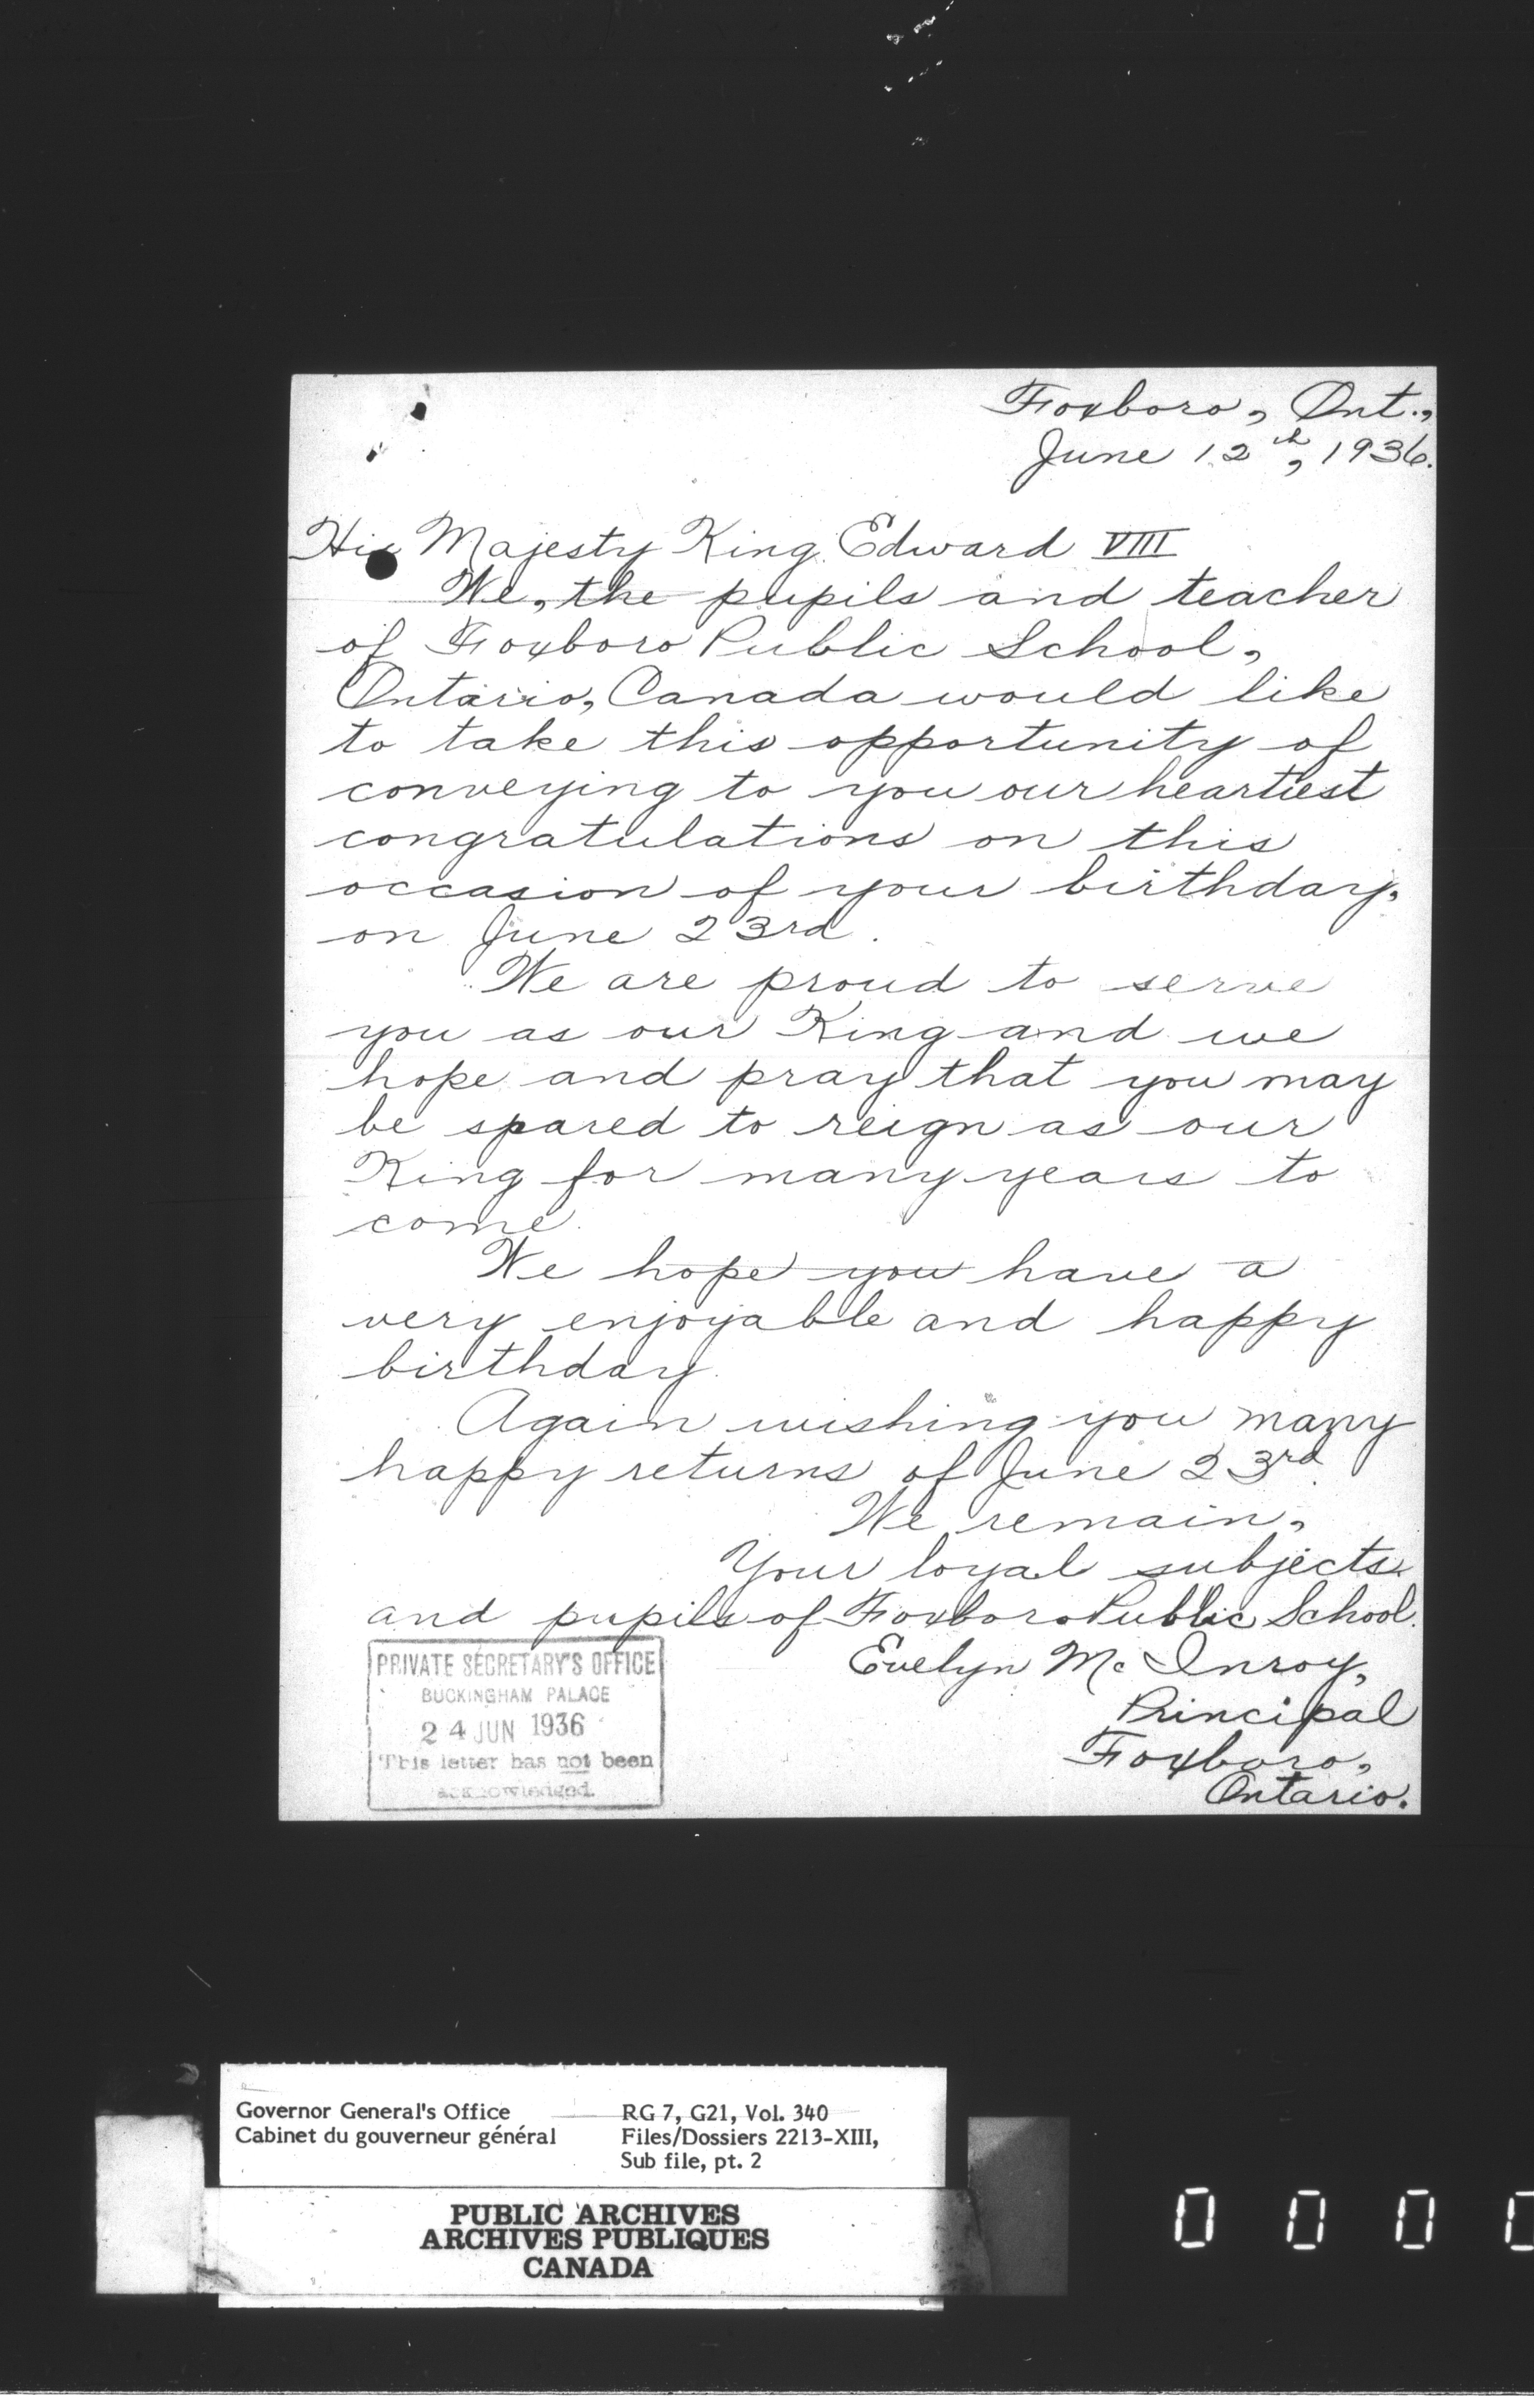 Foxboro, Ont.,
June 12th, 1936.
His Majesty King Edward VIII
We, the pupils and teacher
of Foxboro Public School,
Ontario, Canada would like
to take this opportunity of
conveying to you our heartiest
congratulations on this
occasion of your birthday,
on June 23rd.
We are proud to serve
you as our King and we
hope and pray that you may
be spared to reign as our
King for many years to
come.
We hope you have a
very enjoyable and happy
birthday.
Again wishing you many
happy returns of June 23rd.
We remain,
Your loyal subjects
and pupils of Foxboro Public School.
Evelyn Mc Inroy,
Principal
Foxboro,
Ontario.
PRIVATE SECRETARY'S OFFICE
BUCKINGHAM PALACE
24 JUN 1936
This letter has not been
acknowledged.
Governor General's Office
Cabinet du gouverneur général
RG 7, G21, Vol. 340
Files/Dossiers 2213-XIII,
Sub file, pt. 2
PUBLIC ARCHIVES
ARCHIVES PUBLIQUES
CANADA
0 0 0